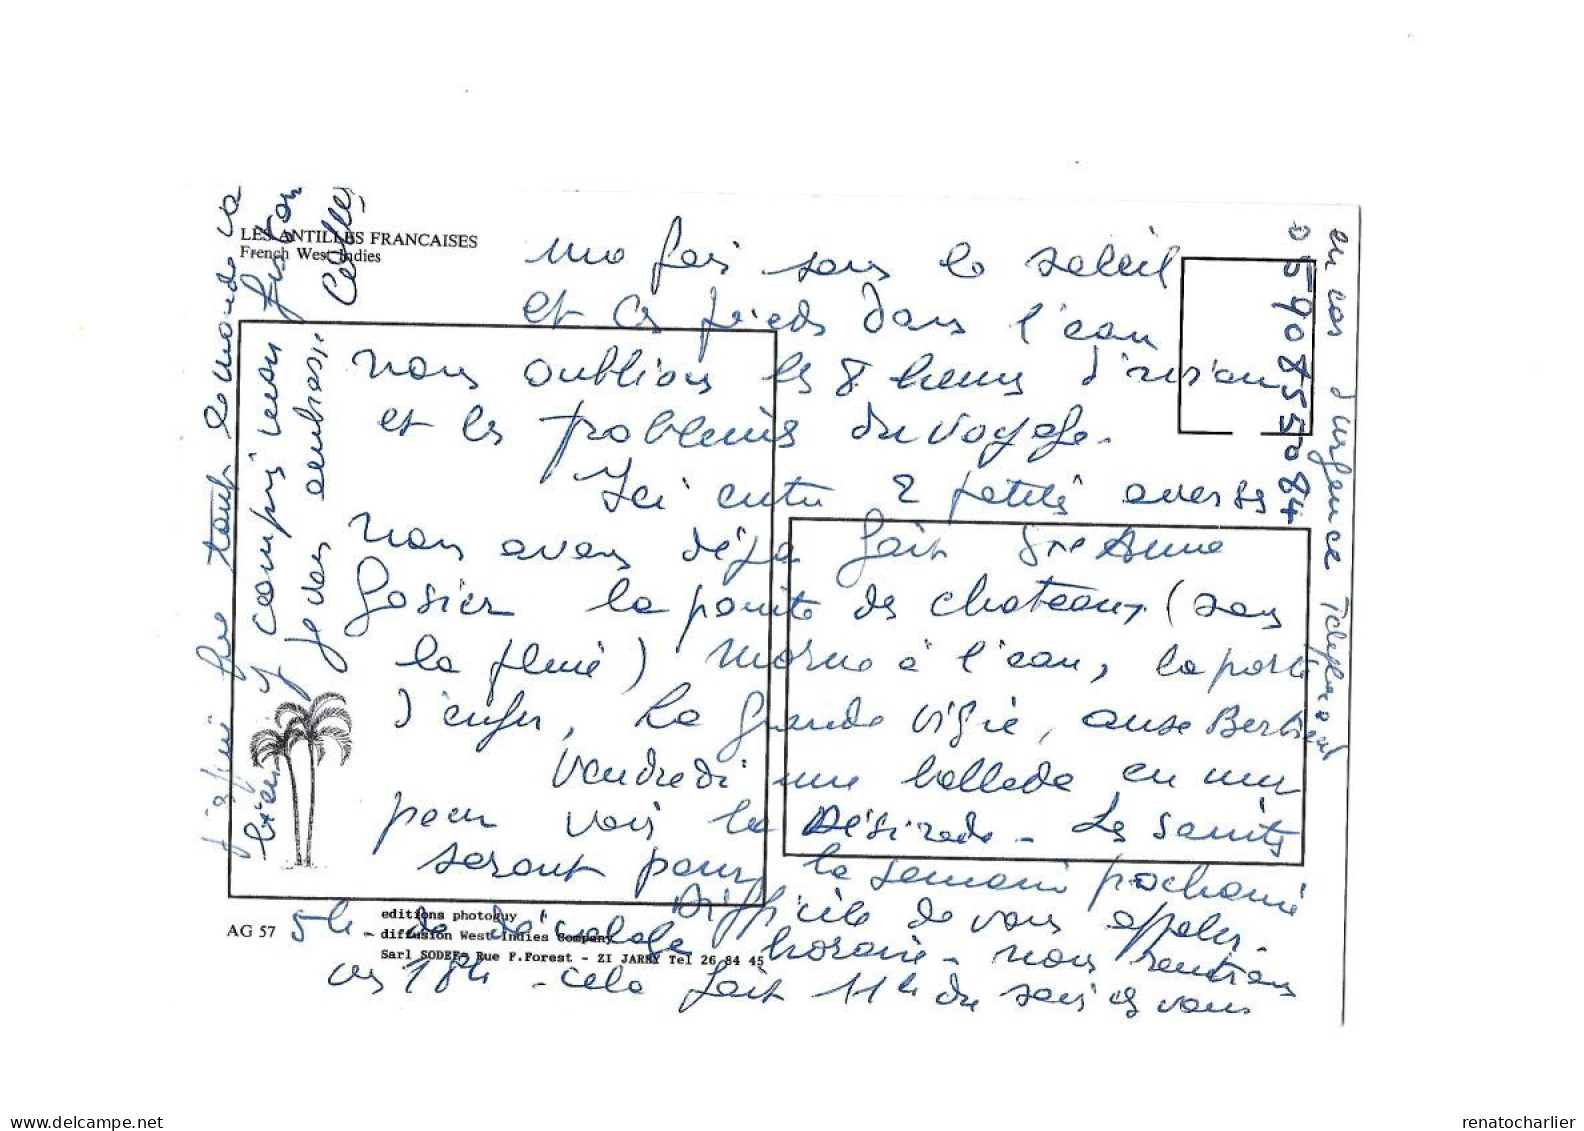 LES ANTILLES FRANCAISES
French West Indies
une fois sous le soleil
et les pieds dans l'eau
nous oublions les 8 heures d'avion
et les problèmes du voyage.
Ici entre 2 petites averses
nous avons déjà fait Ste Anne
Gosier la pointe des chateaux (sous
la pluie) Morne à l'eau, la porte
d'enfer, la grande vigie, anse Bertrand
Vendredi une ballade en mer
pour voir la Désirade - Les Saintes
seront pour la semaine prochaine
Difficile de vous appeler -
5h de décalage horaire - nous rentrons
vers 18h - cela fait 11h du soir chez vous
j'espère que tout le monde va
bien y compris mon
je vous embrasse
en cas d'urgence Telephone
0590855084
AG 57
editions photoguy
diffusion West Indies Company
Sarl SODEF- Rue F.Forest - ZI JARRY Tel 26 84 45
delcampe.net
renatocharlier